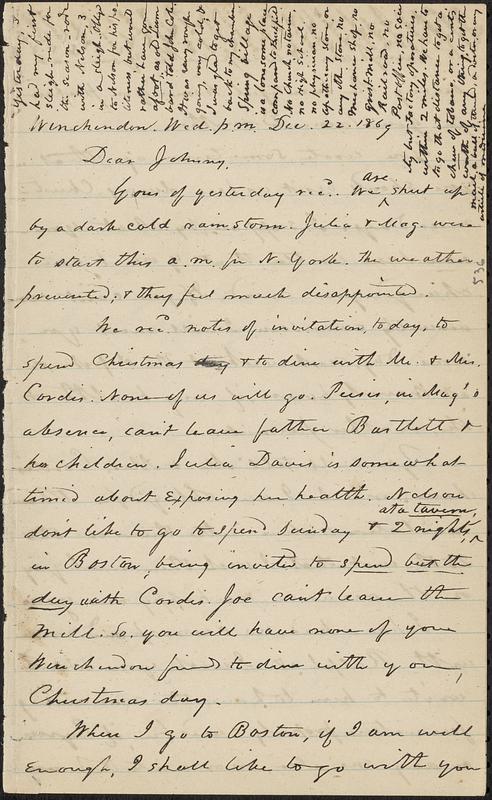 Winchendon. Wed. p.m. Dec. 22. 1869
Dear Johnny.
Yours of yesterday rec'd. We are shut up
by a dark cold rain storm. Julia & Mag. were
to start this a.m. for N. York. the weather
prevented, & they feel much disappointed.
We rec'd. notes of invitation, today, to
spend Christmas day & to dine with Mr. & Mrs.
Cordes. None of us will go. in Mag's
absence, can't leave father Bartlett &
her children. Julia Davis is somewhat
timid about Exposing her health. Nelson
don't like to go to spend Sunday & 2 nights, at a tavern,
in Boston, being invited to spend but the
day with Cordes. Joe can't leave the
Mill. So. you will have none of your
Winchendon friends to dine with you,
Christmas day.
When I go to Boston, if I am well
Enough, I shall like to go with you
Yesterday, I
had my first
sleigh-ride for
the season. rode
with Nelson 3
in a sleigh. They
going, very cold, &
I was glad to get
back to my chamber.
Spring Village
is a lonesome place
compared to
No Church no tavern
no High School.
no physician no
apothecary store or
any other store, no
Mechanic shop no
Grist Mill, no
Rail road, no
Post office, no
within 2 miles. We have to
to go that distance to get a
chew of tobacco, a cents
worth of any thing or to
mail a letter
article of medicine
536